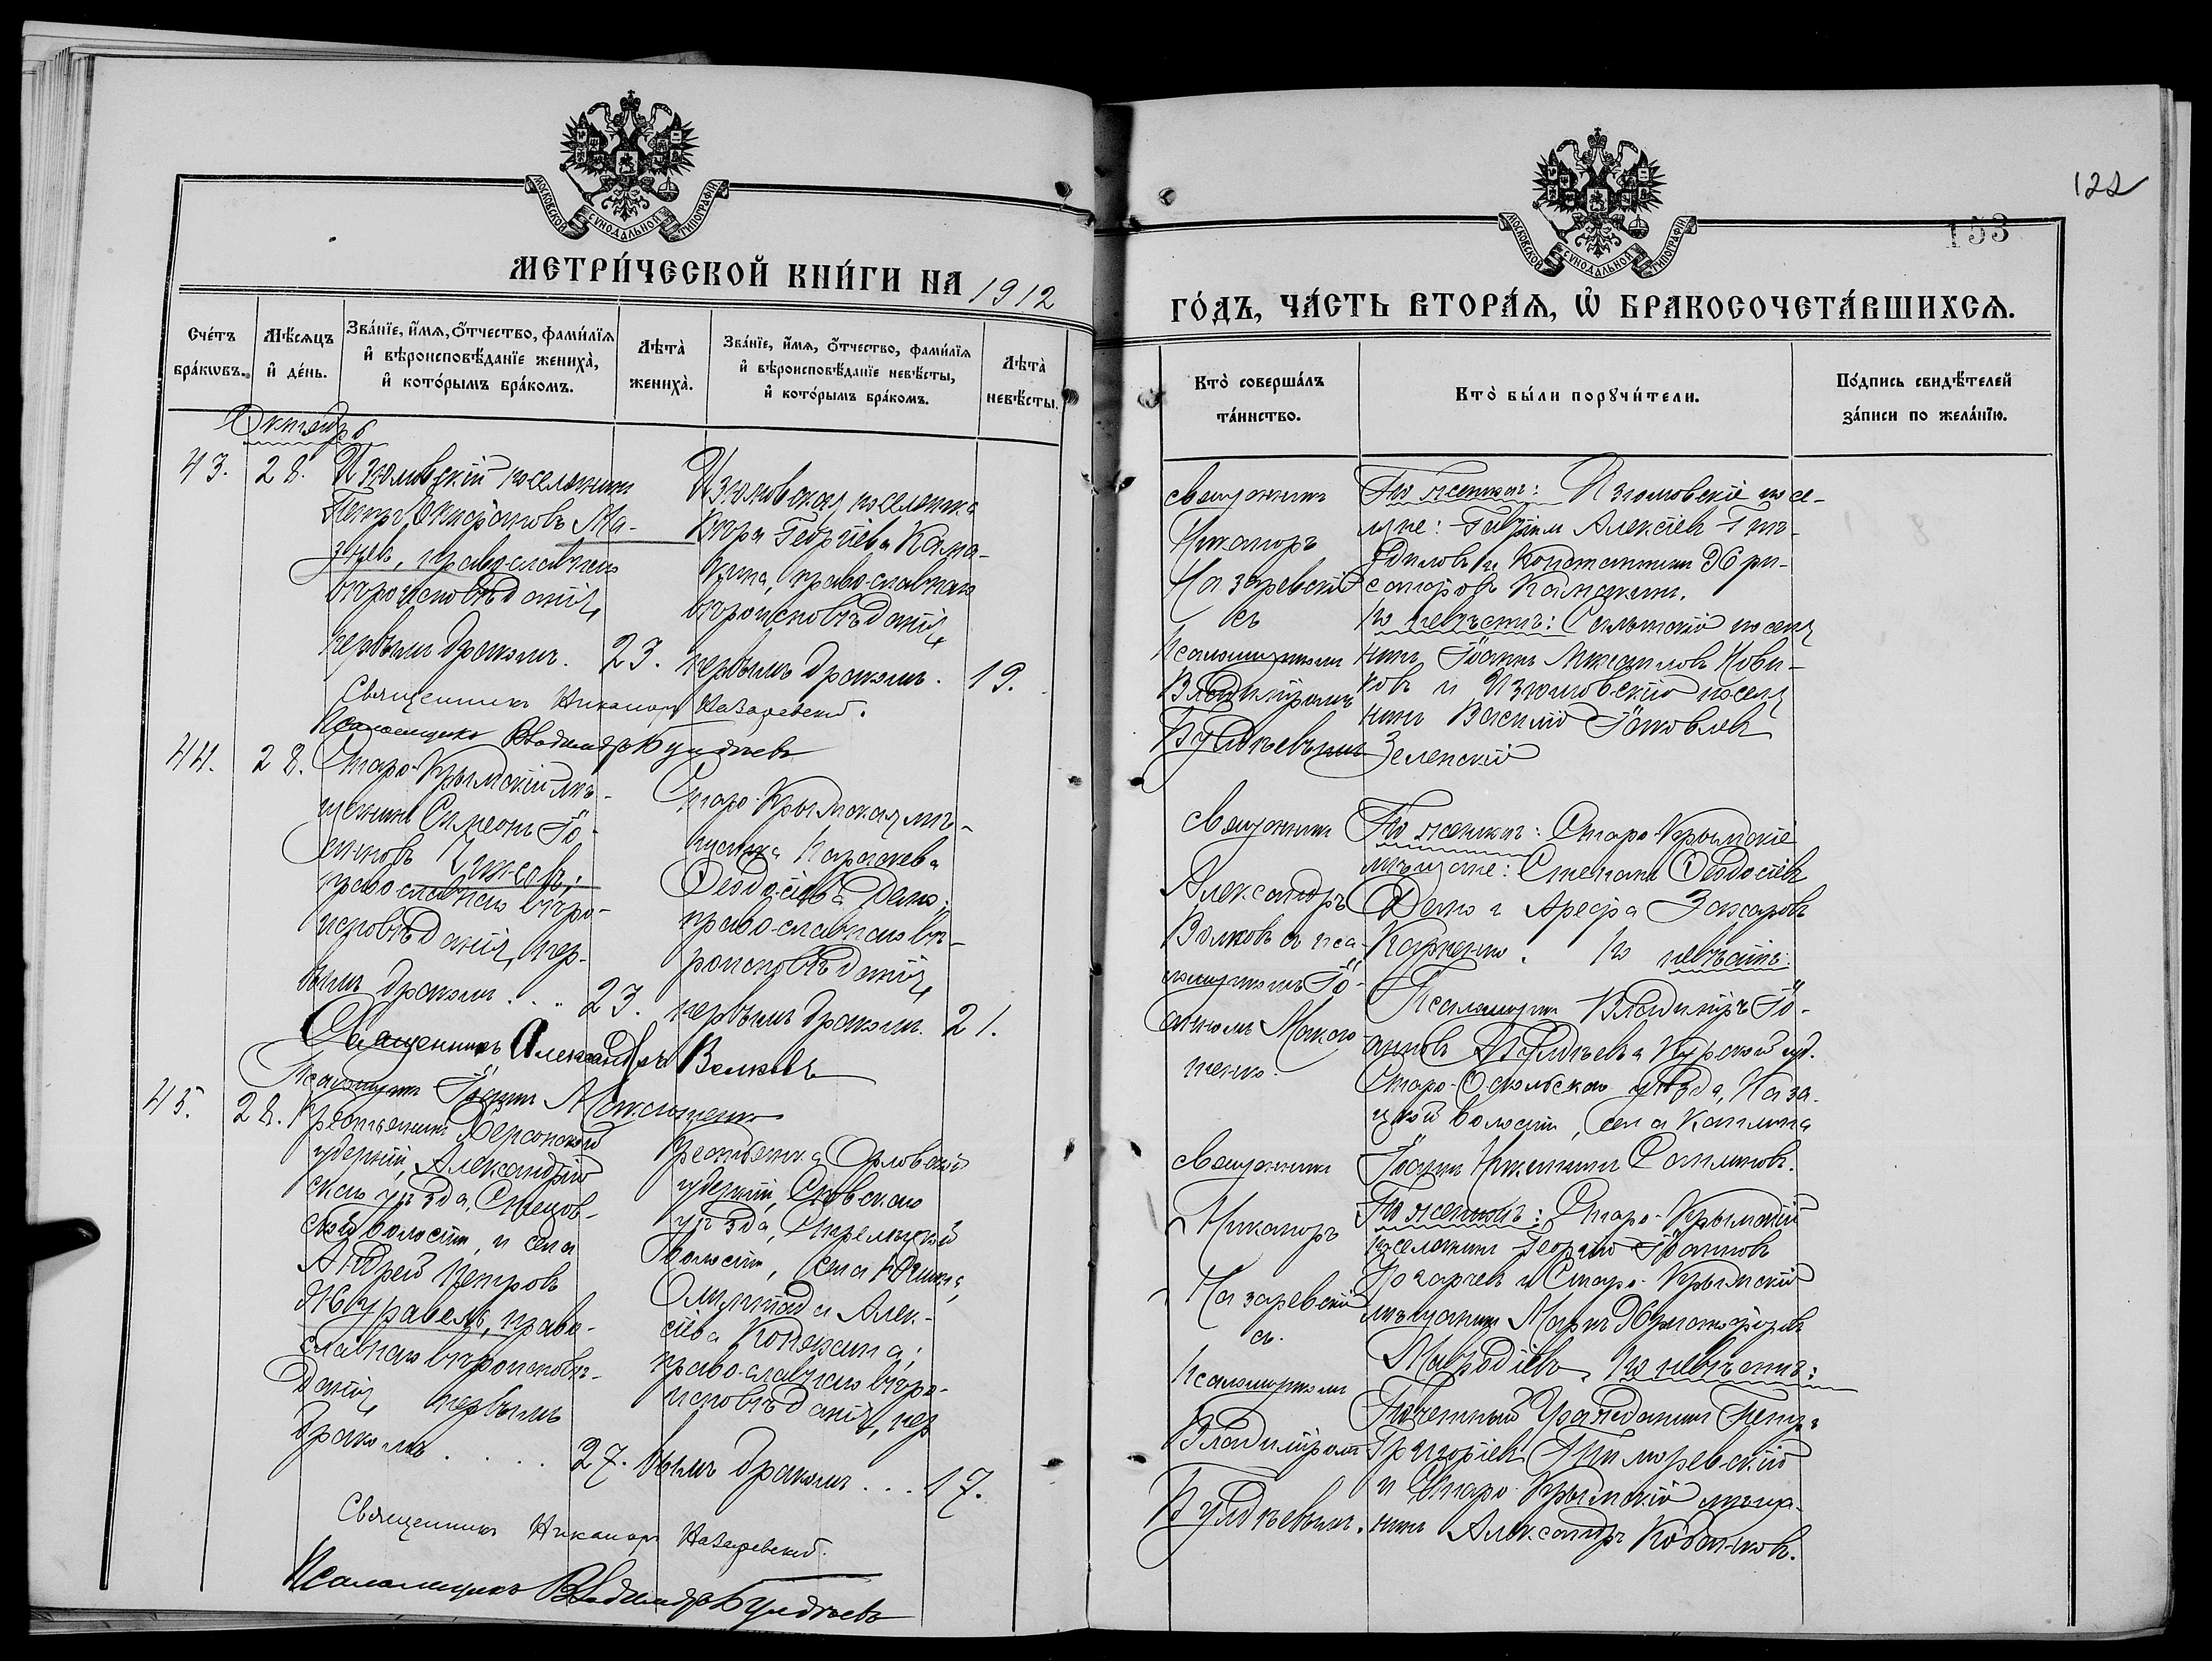 МОСКОВСКОЙ СУНОДАЛЬНОЙ ТИПОГРАФІИ
МЕТРИ́ЧЕСКОЙ КНИ́ГИ НА 1912
Сче́тъ бра́кωвъ.
Мѣ́сяцъ и҆ де́нь.
Зва́нїе, и҆́мя, ѻ҆́тчество, фами́лїя
и҆ вѣроисповѣ́данїе жениха̀,
и҆ кото́рымъ бра́комъ.
Лѣта̀ жениха̀.
Зва́нїе, и҆́мя, ѻ҆́тчество, фами́лїя
и҆ вѣроисповѣ́данїе невѣ́сты,
и҆ кото́рымъ бра́комъ.
Лѣта̀ невѣ́сты.
Октябрь
43.
28.
Изюмовскій поселянинъ
Петръ
православнаго
вѣроисповѣданія,
первымъ бракомъ. 23.
Изюмовская поселянка
Вѣра Георгіева Кама-
кина, православнаго
вѣроисповѣданія,
первымъ бракомъ. 19.
Священникъ Никаноръ Назаревскій.
Псаломщикъ Владимиръ Булдѣевъ
44.
28.
Старо-Крымскій мѣ-
щанинъ Симеонъ Іо-
анновъ
православнаго вѣро-
исповѣданія, пер-
вымъ бракомъ. . . 23.
Старо-Крымская мѣ-
щанка
Ѳеодосіева Демо;
православнаго вѣ-
роисповѣданія,
первымъ бракомъ. 21.
Священникъ Александръ Волковъ
Псаломщикъ Іоаннъ
45.
28.
Крестьянинъ Херсонской
губерніи, Александрій-
скаго уѣзда,
волости, и села
Андрей Петровъ
Журавель, право-
славнаго вѣроисповѣ-
данія, первымъ
бракомъ . . . . 27.
Крестьянка Орловской
губерніи, Сѣвскаго
уѣзда, Стрелецкой
волости, села Юшина,
Олимпіада Алек-
сіева
православнаго вѣро-
исповѣданія, пер
вымъ бракомъ . . . 17.
Священникъ Никаноръ Назаревскій.
Псаломщикъ Владимиръ Булдѣевъ
122
153
МОСКОВСКОЙ СУНОДАЛЬНОЙ ТИПОГРАФІИ
ГО́ДЪ, ЧА́СТЬ ВТОРА́Я, Ѽ БРАКОСОЧЕТА́ВШИХСЯ.
Кто̀ соверша́лъ
та́инство.
Кто̀ бы́ли порꙋчи́тели.
По́дпись свидѣ́телей
за́писи по жела́нїю.
Священникъ
Никаноръ
Назаревскій
съ
псаломщикомъ
Владиміромъ
Булдѣевымъ
По женихѣ: Изюмовскіе посе-
ляне: Гавріилъ Алексіевъ
и Константинъ Хри-
санфовъ Камакинъ.
По невѣстѣ: Салынскій поселя
нинъ Іоаннъ Михаиловъ Нови-
ковъ и Изюмовскій поселя
нинъ Василій Іаковлевъ
Зеленскій
Священникъ
Александръ
Волковъ съ пса-
ломщикомъ Іо-
анномъ
По женихѣ: Старо-Крымскіе
мѣщане: Стефанъ Ѳеодосіевъ
Демо и Арефа Захаровъ
По невѣстѣ:
Псаломщикъ Владиміръ Іо-
анновъ Булдѣевъ и Курской губ.
Старо-Оскольскаго уѣзда, Каза-
цкой волости, села Каплина
Іоаннъ Никитинъ
Священникъ
Никаноръ
Назаревскій
съ.
псаломщикомъ
Владиміромъ
Булдѣевымъ.
По женихѣ: Старо-Крымскій
поселянинъ Георгій Іоанновъ
и Старо-Крымскій
мѣщанинъ Маркъ Христофоровъ
По невѣстѣ:
Почетный Гражданинъ Петръ
Григоріевъ
и Старо-Крымскій мѣща-
нинъ Александръ